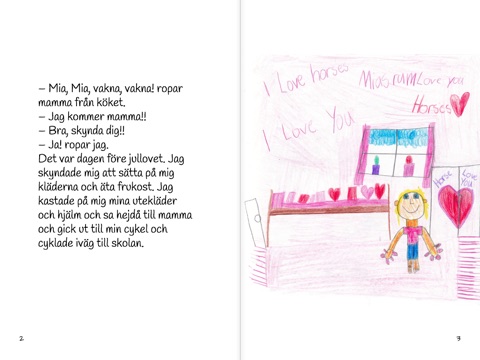 – Mia, Mia, vakna, vakna! ropar
mamma från köket.
– Jag kommer mamma!!
– Bra, skynda dig!!
– Ja! ropar jag.
Det var dagen före jullovet. Jag
skyndade mig att sätta på mig
kläderna och äta frukost. Jag
kastade på mig mina utekläder
och hjälm och sa hejdå till mamma
och gick ut till min cykel och
cyklade iväg till skolan.
2
I Love horses
Mias rum Love you
Horses
I Love You
Horse
LOVE
YOU
3